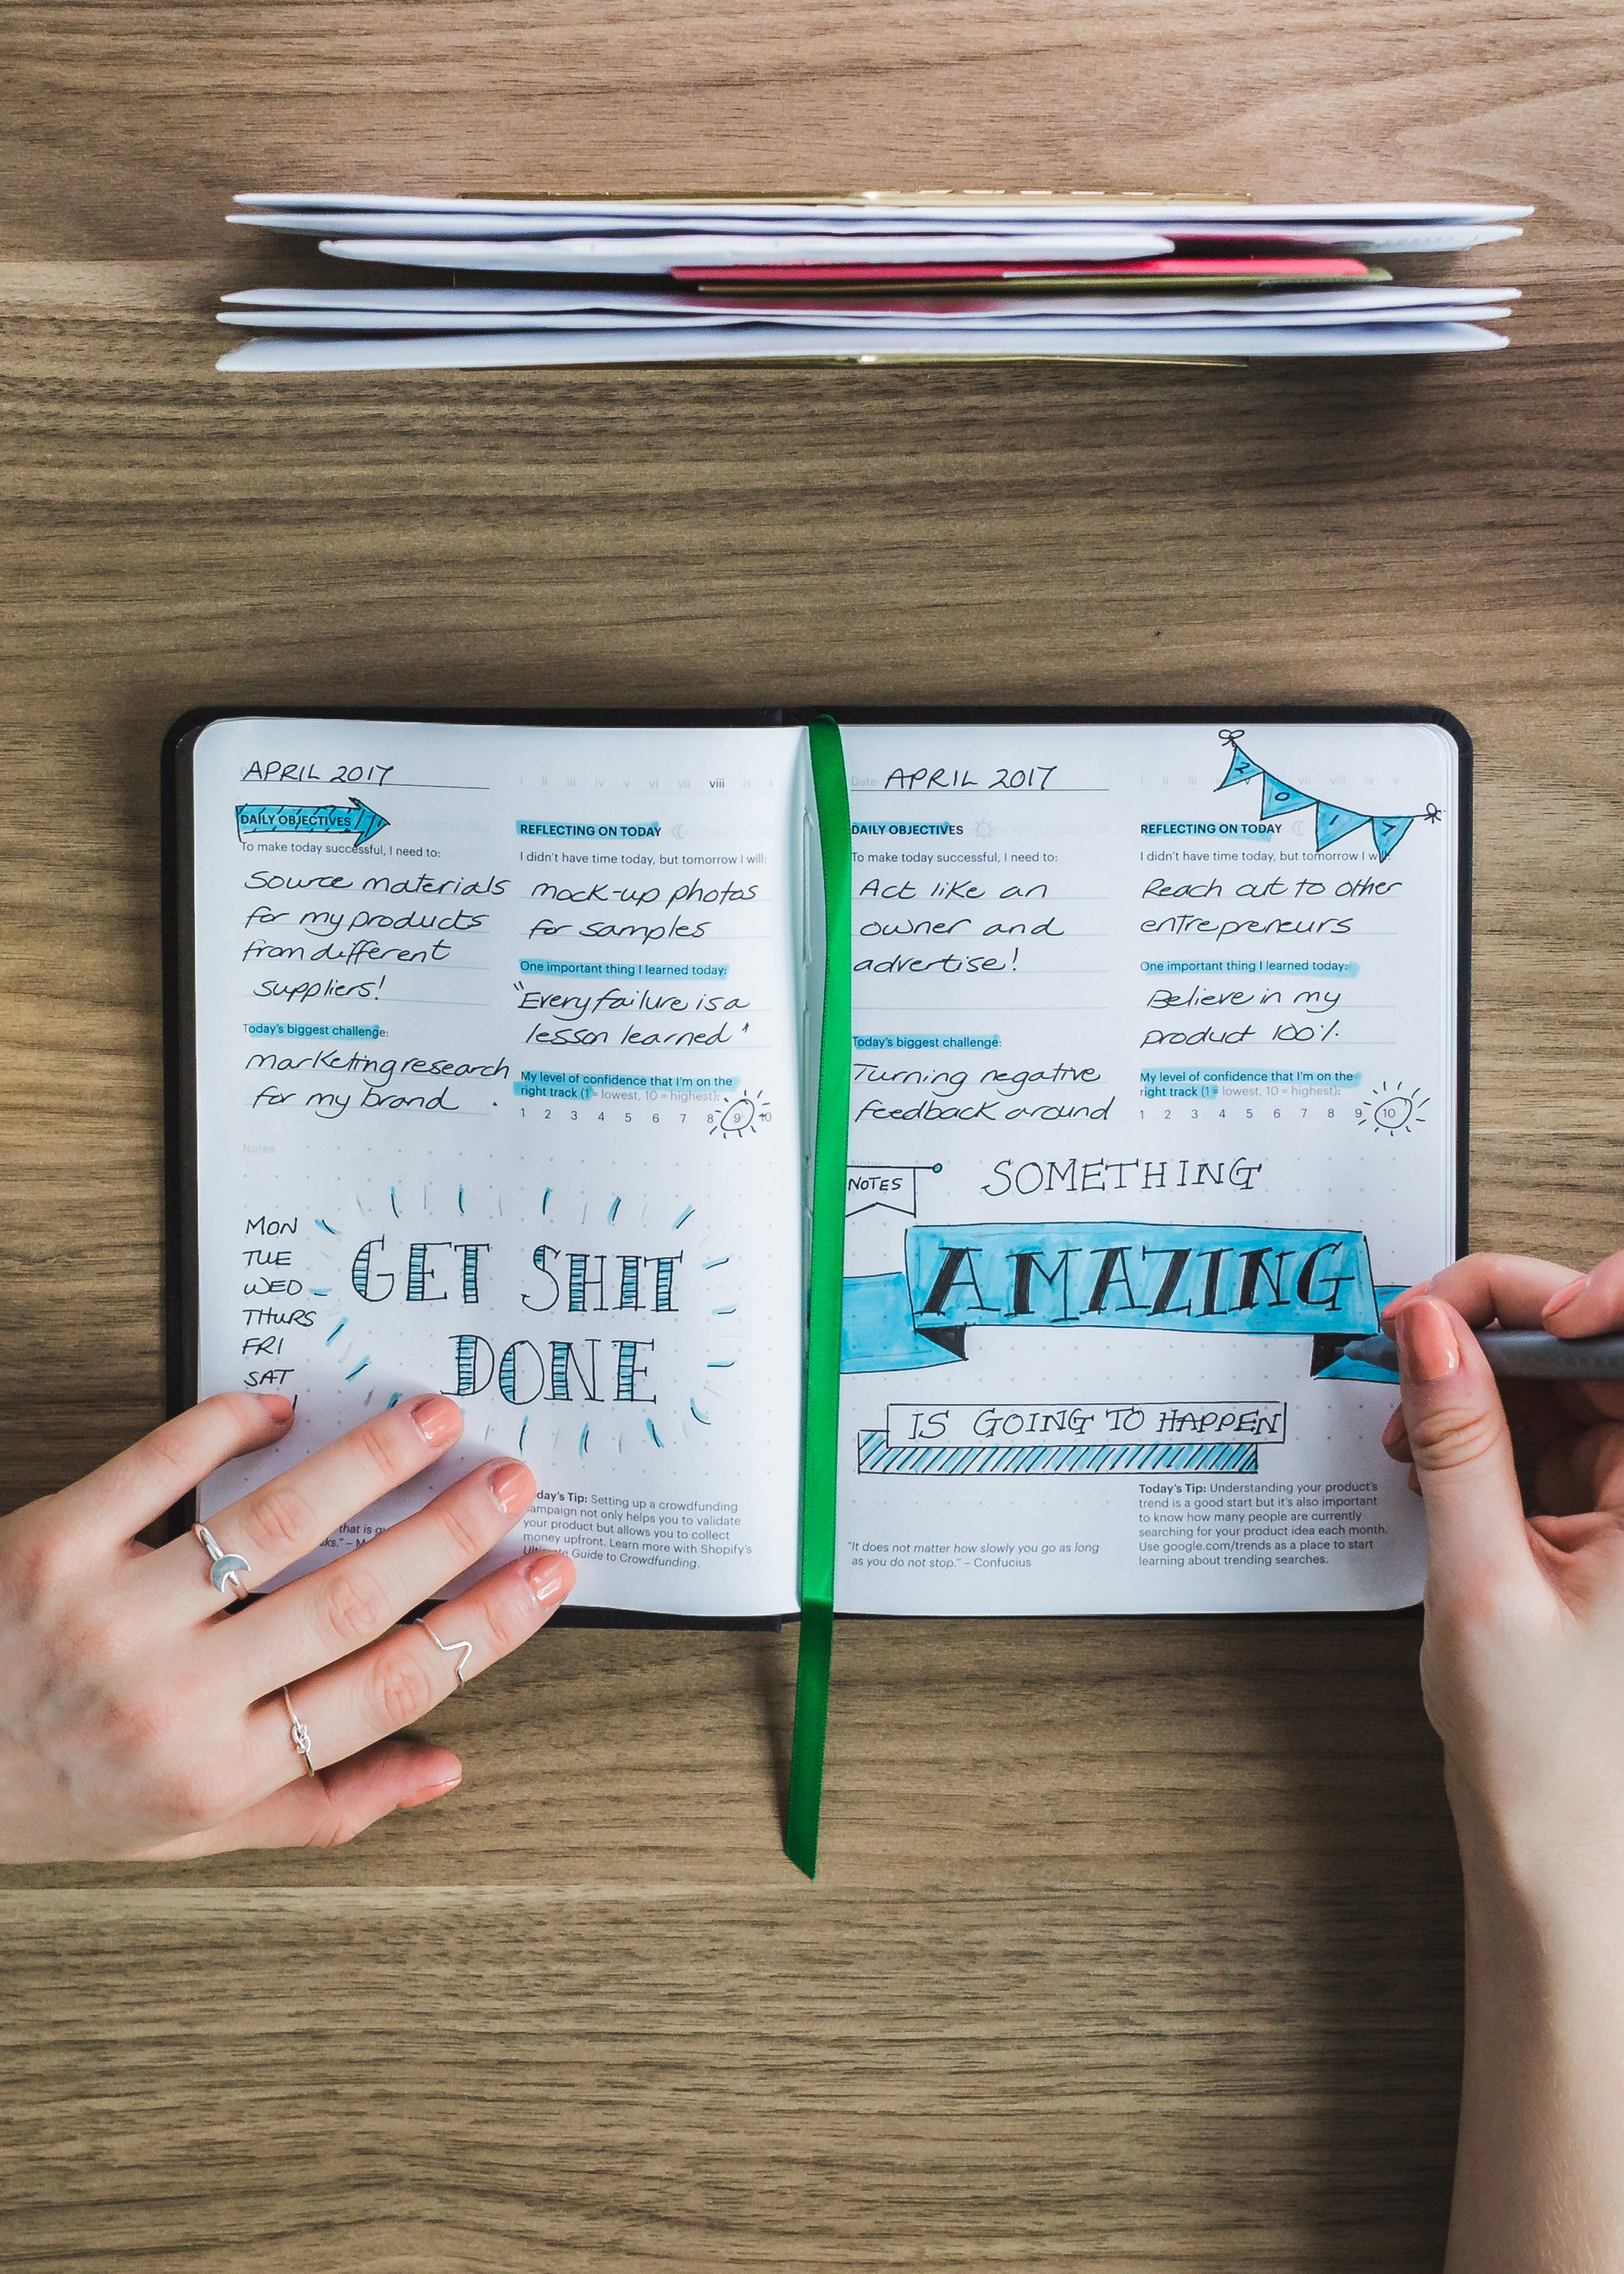 APRIL 2017
i ii iii iv v vi vii viii ix x
DAILY OBJECTIVES
To make today successful, I need to:
Source materials
for my products
from different
suppliers!
Today's biggest challenge:
marketing research
for my brand.
REFLECTING ON TODAY
I didn't have time today, but tomorrow I will:
mock-up photos
for samples
One important thing I learned today:
"Every failure is a
lesson learned"
My level of confidence that I'm on the
right track (1 = lowest, 10 = highest):
1 2 3 4 5 6 7 8 9 10
Notes
MON
TUE
WED
THURS
FRI
SAT
GET SHIT
DONE
that is
Tip: Setting up a crowdfunding
not only helps you to validate
your product but allows you to collect
money upfront. Learn more with Shopify's
Guide to Crowdfunding.
Date APRIL 2017
2017
DAILY OBJECTIVES
To make today successful, I need to:
Act like an
owner and
advertise!
Today's biggest challenge:
Turning negative
feedback around
REFLECTING ON TODAY
I didn't have time today, but tomorrow I
Reach out to other
entrepreneurs
One important thing I learned today:
Believe in my
product 100%
My level of confidence that I'm on the
right track (1 = lowest, 10 = highest):
1 2 3 4 5 6 7 8 9 10
NOTES
SOMETHING
AMAZING
IS GOING TO HAPPEN
"It does not matter how slowly you go as long
as you do not stop." – Confucius
Today's Tip: Understanding your product's
trend is a good start but it's also important
to know how many people are currently
searching for your product idea each month.
Use google.com/trends as a place to start
learning about trending searches.